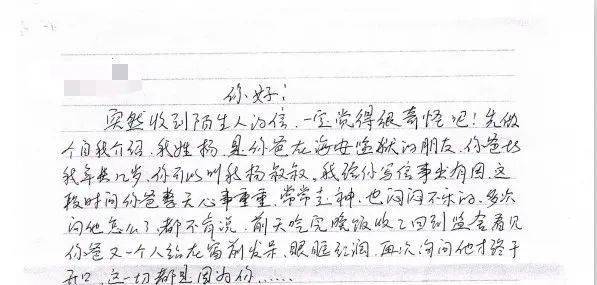 你好：
突然收到陌生人的信，一定觉得很奇怪吧！先做
个自我介绍，我姓杨，是你爸在海安监狱的朋友，你爸比
我年长几岁，你可以叫我杨叔叔。我给你写信事出有因，这
段时间你爸整天心事重重，常常走神，也闷闷不乐的，多次
问他怎么了都不肯说，前天吃完晚饭收工回到监舍看见
你爸又一个人站在窗前发呆、眼眶红润，再次询问他才终于
开口，这一切都是因为你……